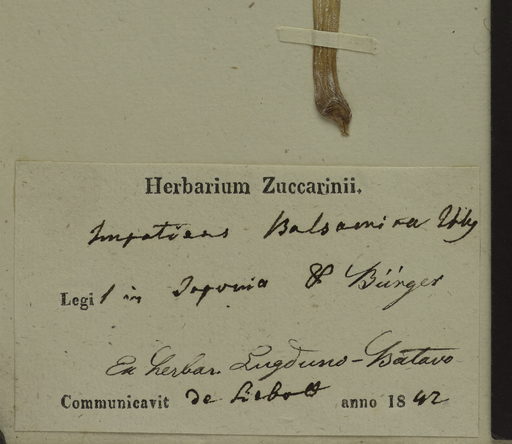 Herbarium Zuccarinii.
Impatiens Balsamina
Legit in Japonia Dr Bürger
Ex herbar. Lugduno-Batavo
Communicavit de Siebold anno 1842